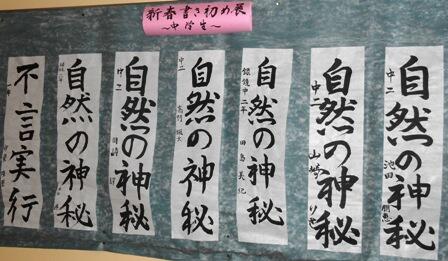 新春書き初め展
～中学生～
自然の神秘
中二 池田
自然の神秘
中二 山崎
自然の神秘
銀鏡中二年 田島美紀
自然の神秘
中二
自然の神秘
中二
自然の神秘
不言実行